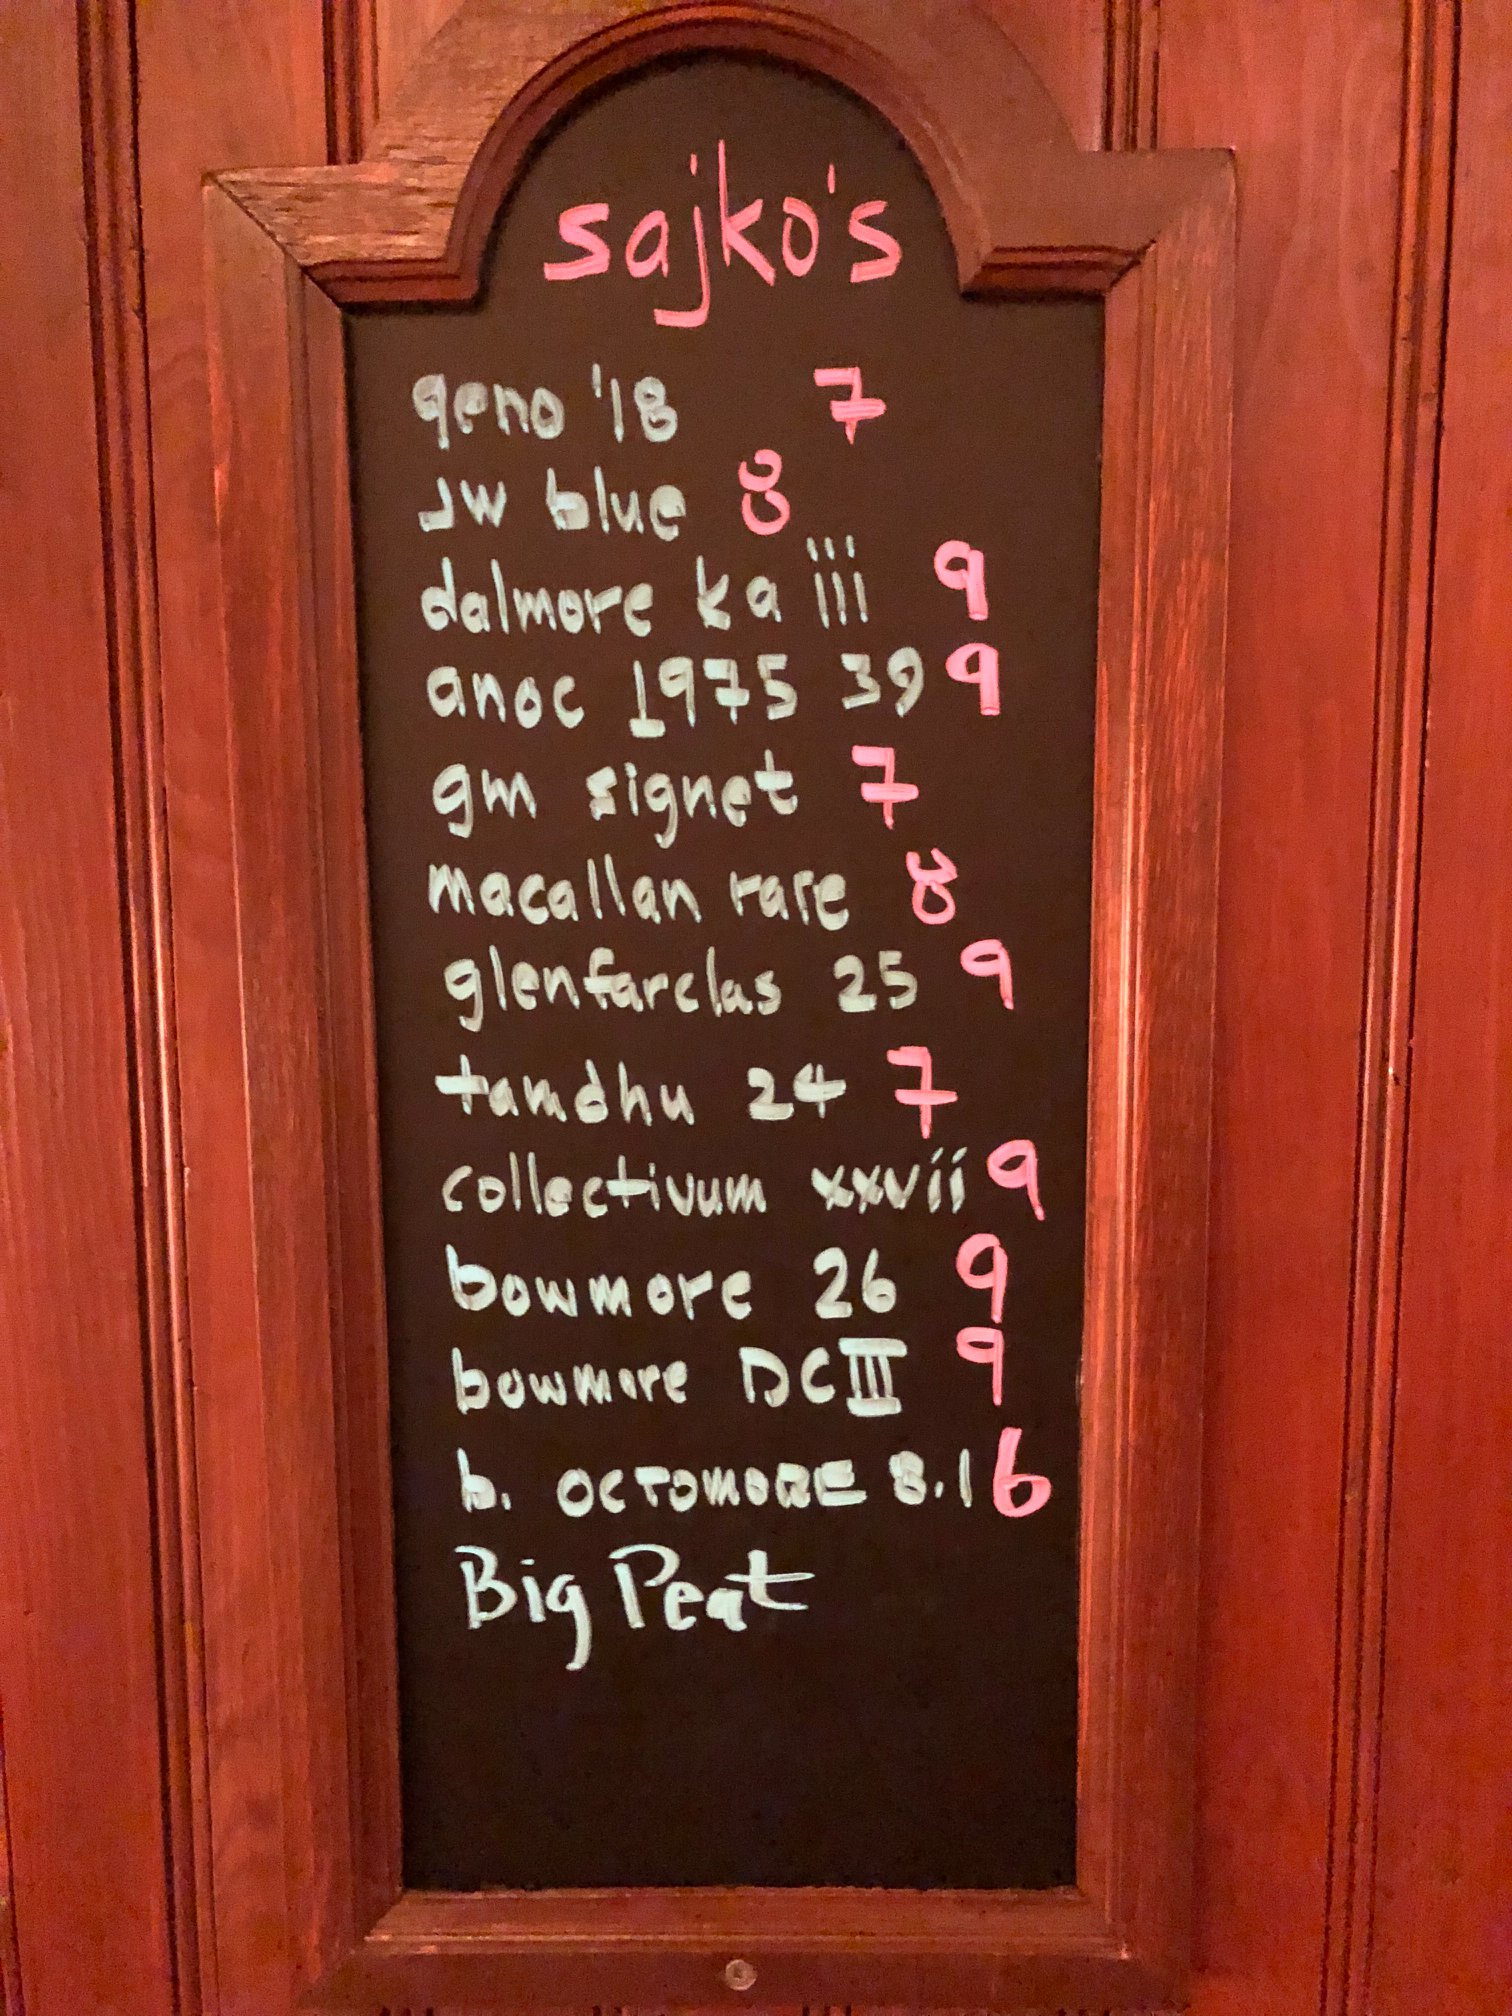 sajko's
geno '18 7
JW blue 8
dalmore ka iii 9
anoc 1975 39 9
gm signet 7
macallan rare 8
glenfarclas 25 9
tamdhu 24 7
collectivum xxvii 9
bowmore 26 9
bowmore DC III 9
b. OCTOMORE 8.1 6
Big Peat